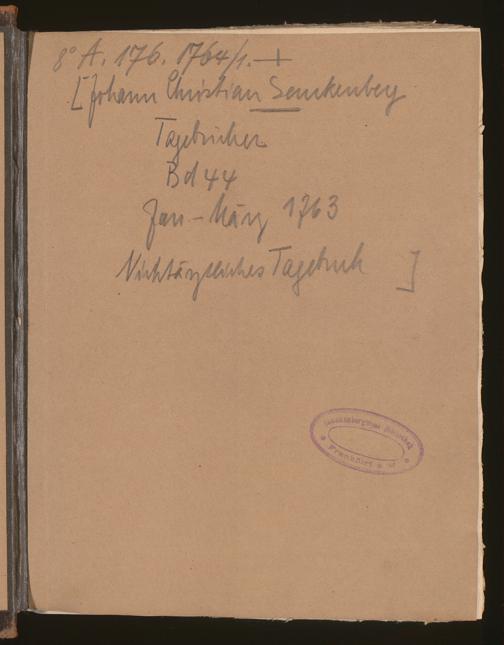 8° A. 176. 1764/1. +
[Johann Christian Senckenberg
Tagebücher
Bd 44
Jan - März 1763
Nichtärztliches Tagebuch ]
Senckenbergische Bibliothek
Frankfurt a M